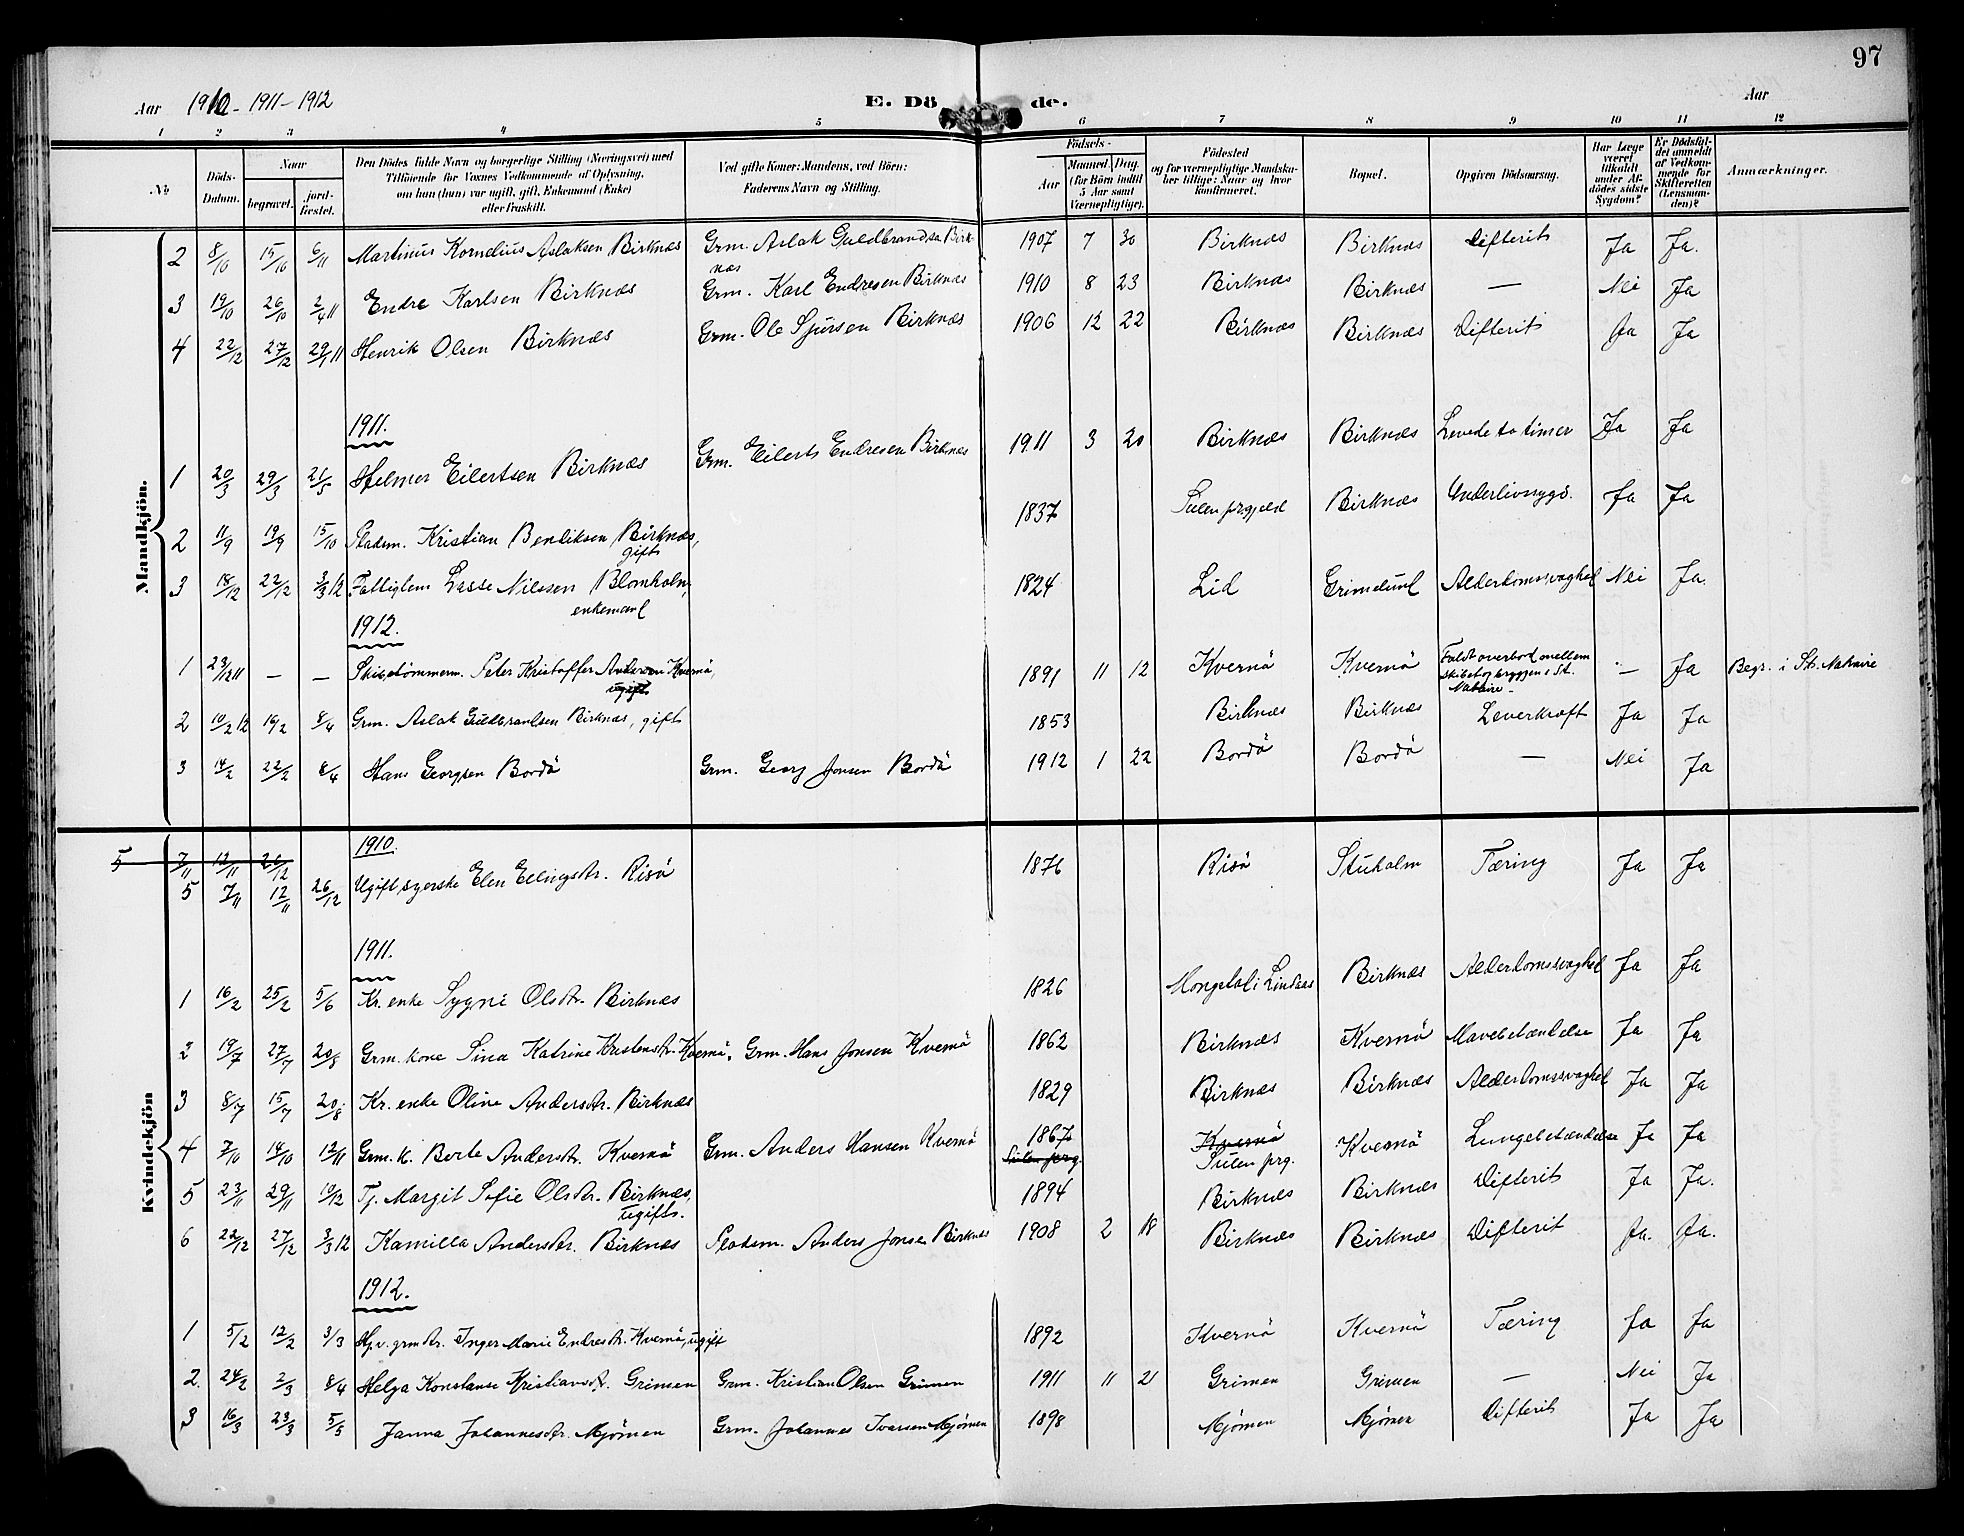 97
Aar 1910 - 1911 - 1912 E. Dö de. Aar
1 2 3 4 5 6 7 8 9 10 11 12
No Döds-Datum. Naar begravet. jordfæstet. Den Dödes fulde Navn og borgerlige Stilling (Næringsvei) med Tilföiende for Voxnes Vedkommende af Oplysning, om han (hun) var ugift, gift, Enkemand (Enke) eller fraskilt. Ved gifte Koner: Mandens, ved Börn: Faderens Navn og Stilling. Födsels- Aar Maaned. Dag. (for Börn indtil 5 Aar samt Værnepligtige). Födested og for værnepligtige Mandskaber tillige: Naar og hvor konfirmeret. Bopæl. Opgiven Dödsaarsag. Har Læge været tilkaldt under Afdödes sidste Sygdom? Er Dödsfaldet anmeldt af Vedkommende for Skifteretten (Lensmanden)? Anmærkninger.
Mandkjön.
2 8/10 15/10 6/11 Martinus Kornelius Aslaksen Birknæs Grm. Aslak Guldbrandsa Birknæs 1907 7 30 Birknæs Birknæs Difterit Ja Ja.
3 19/10 26/10 2/4 11 Endre Karlsen Birknæs Grm. Karl Endresen Birknæs 1910 8 23 Birknæs Birknæs — Nei Ja
4 22/12 27/12 29/1 11 Henrik Olsen Birknæs Grm. Ole Sjursen Birknæs 1906 12 22 Birknæs Birknæs Difterit Ja Ja
1911.
1 20/3 29/3 21/5 Helmer Eilertsen Birknæs Grm. Eilert Endresen Birknæs 1911 3 20 Birknæs Birknæs Levede to timer Ja Ja
2 11/9 19/9 15/10 Pladsm. Kristian Bendiksen Birknæs, gift 1837 Sulen prgjeld Birknæs Underlivssygd. Ja Ja
3 18/12 22/12 3/3 12 Fattiglem Lasse Nilssen Blomholm, enkemand 1824 Lid Grimelund Alderdomssvaghed Nei Ja.
1912.
1 23/12 11 — — Skibstømmerm. Peter Kristoffer Andersen Kvernö, ugift 1891 11 12 Kvernö Kvernö Faldt overbord mellem skibet og bryggen i St. Nazaire — — Ja Begr. i St. Nazaire
2 10/2 12 19/2 8/4 Grm. Aslak Guldbrandsen Birknæs, gift 1853 Birknæs Birknæs Leverkræft Ja Ja
3 14/2 22/2 8/4 Hans Georgsen Bordö Grm. Georg Jonsen Bordö 1912 1 22 Bordö Bordö — Nei Ja
Kvindekjön
1910.
5 7/11 12/11 26/12
5 7/11 12/11 26/12 Ugift syerske Elen Ellingsdtr. Risö 1876 Risö Stuholm Tæring Ja Ja
1911.
1 16/2 25/2 5/6 Kr. enke Sygni Olsdtr. Birknæs 1826 Mongstad i Lindaas Birknæs Alderdomssvaghed Ja Ja
2 19/7 27/7 20/8 Grm. kone Sina Katrine Kristensdtr. Kvernö, Grm. Hans Jonsen Kvernö 1862 Birknæs Kvernö Mavebetændelse Ja Ja
3 8/7 15/7 20/8 Kr. enke Oline Andersdtr. Birknæs 1829 Birknæs Birknæs Alderdomssvaghed Ja Ja
4 7/10 14/10 12/11 Grm. k. Berte Andersdtr. Kvernö Grm. Anders Hansen Kvernö 1867 Sulen prg. Kvernö Sulen prg. Kvernö Lungebetændelse Ja Ja
5 23/11 29/11 10/12 Tj. Margit Sofie Olsdtr. Birknæs, ugift. 1894 Birknæs Birknæs Difterit Ja Ja.
6 22/12 27/12 3/3 12 Kamilla Andersdtr. Birknæs Pladsm. Anders Jonsen Birknæs 1908 2 18 Birknæs Birknæs Difterit Ja. Ja.
1912.
1 5/2 12/2 3/3 Hj.v. grmdtr. Inger Marie Endresdtr. Kvernö, ugift 1892 Kvernö Kvernö Tæring Ja Ja
2. 24/2 2/3 8/4 Helga Konstanse Kristiansdtr. Grimen Grm. Kristian Olsen Grimen 1911 11 21 Grimen Grimen — Nei Ja
3 16/3 23/3 5/5 Janna Johannesdtr. Mjömen Grm. Johannes Ivarsen Mjömen 1898 Mjömen Mjömen Difterit Ja Ja